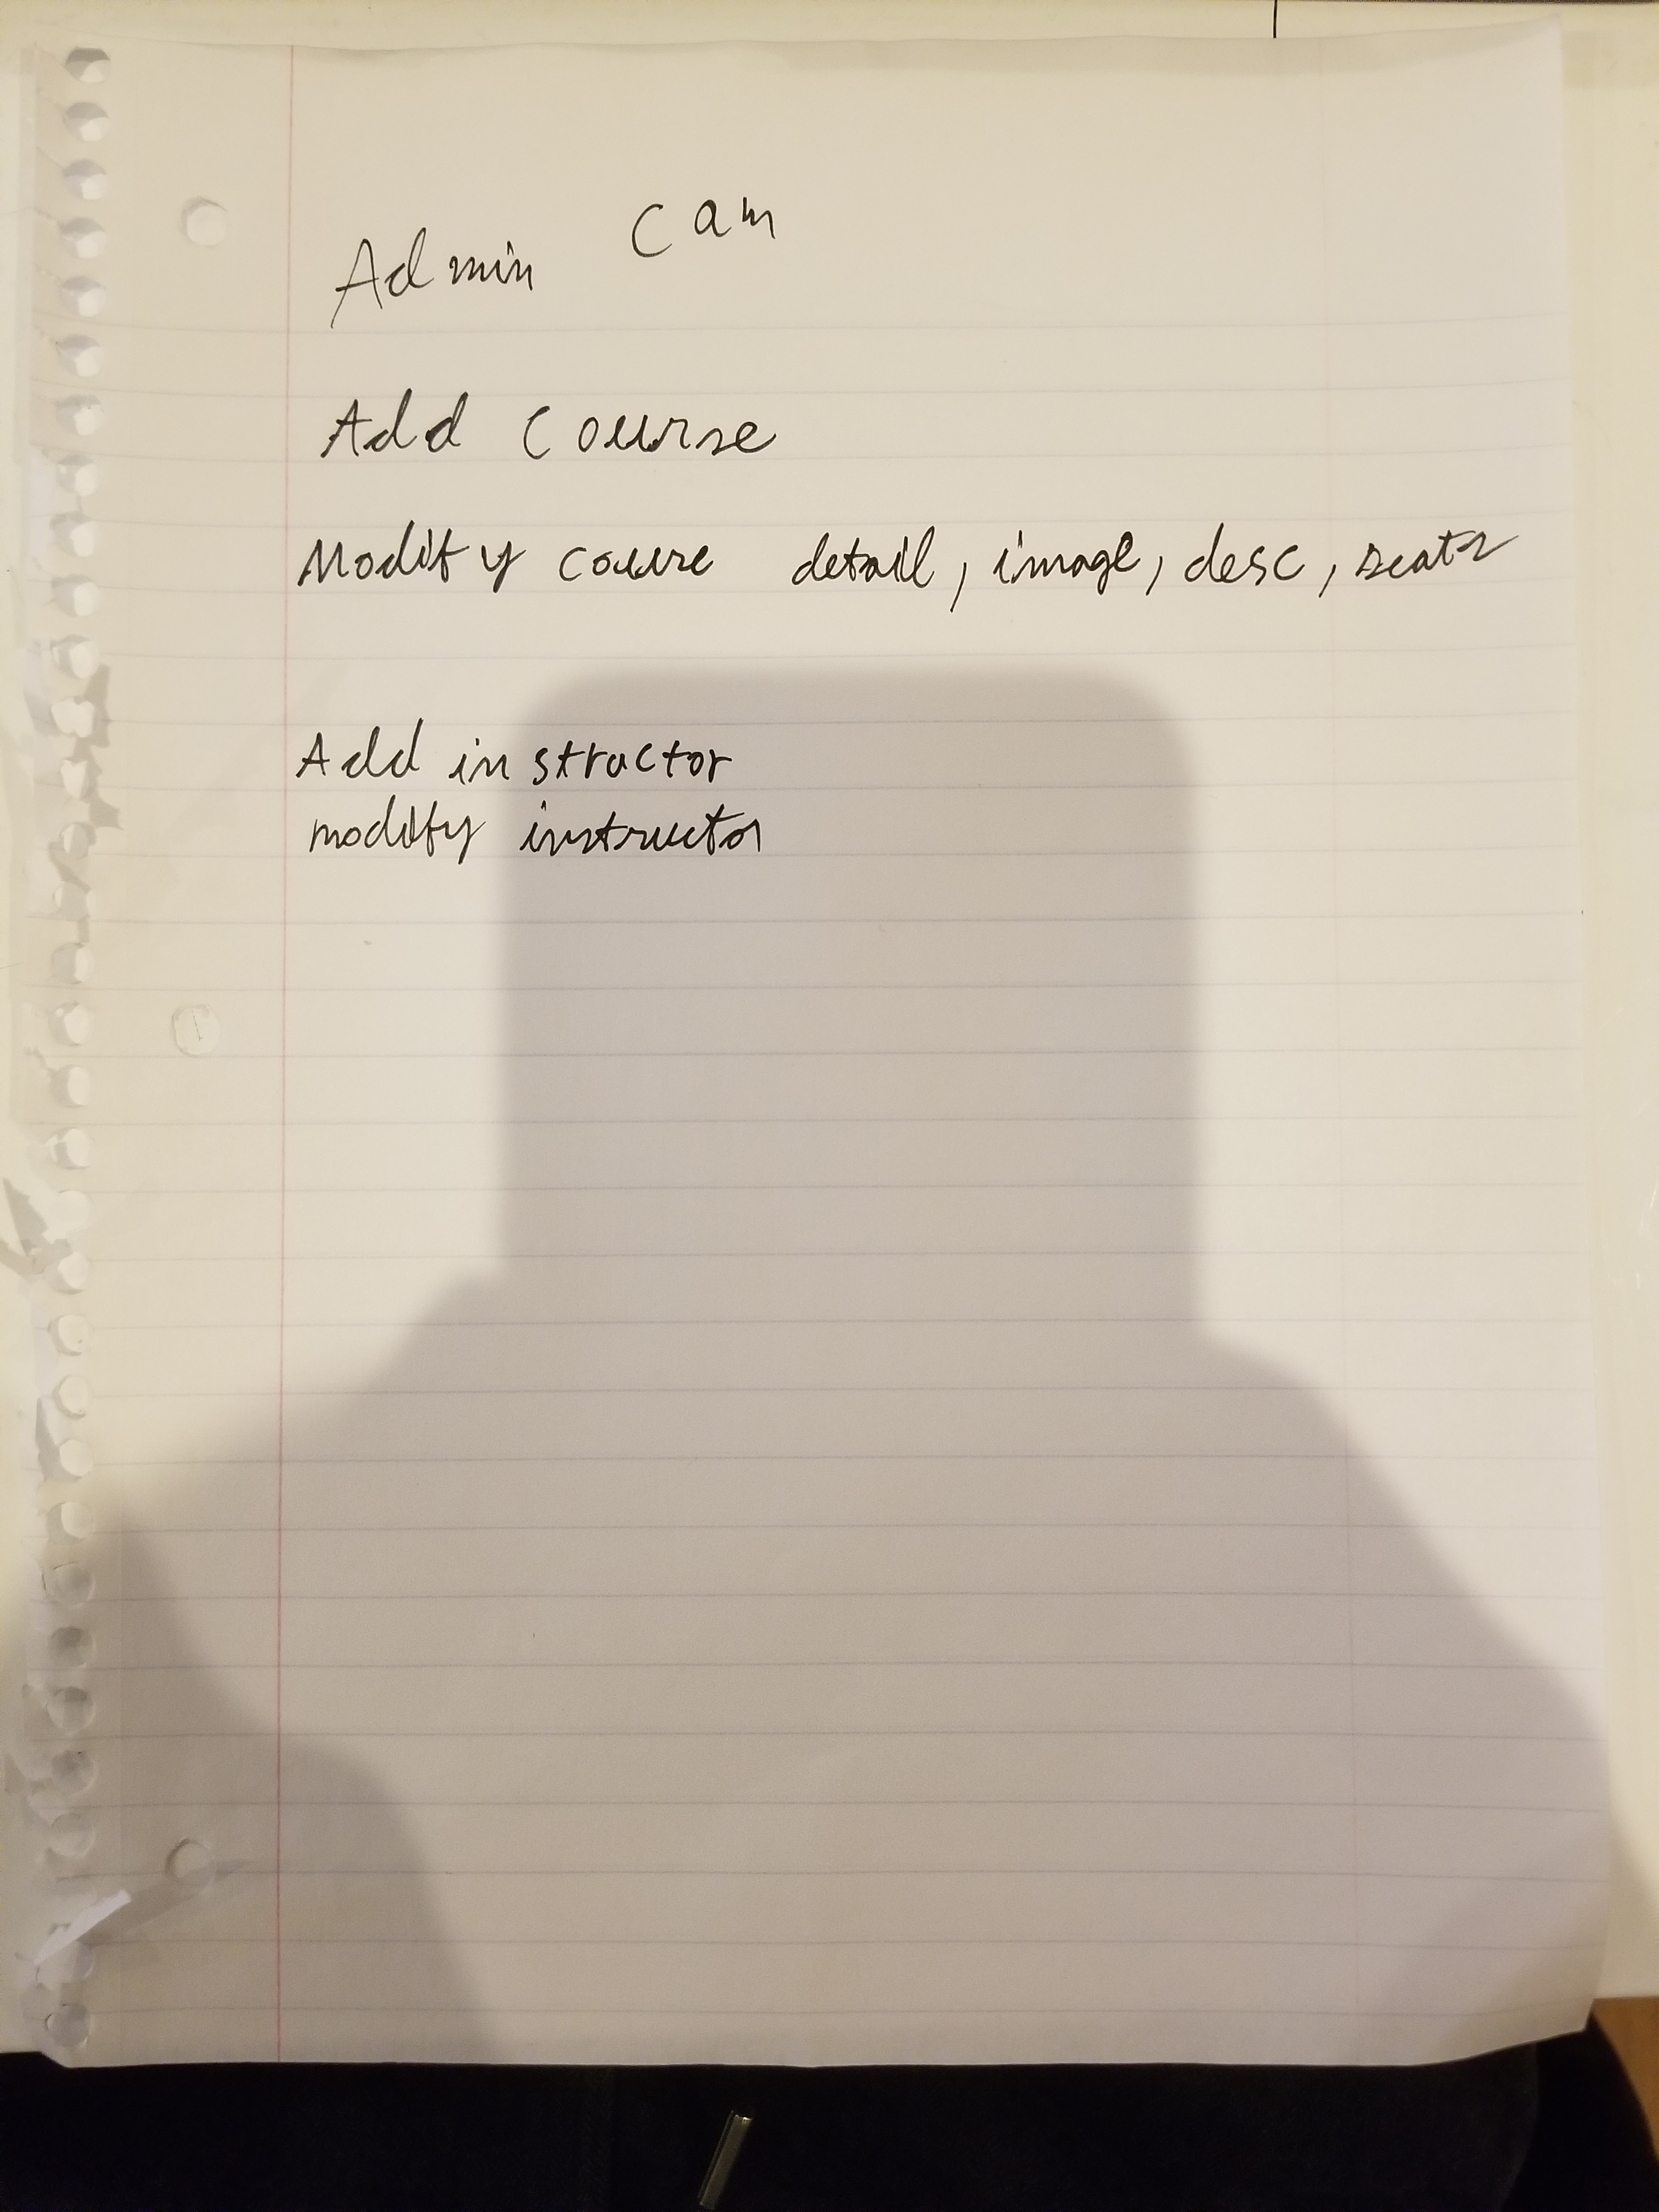 Admin can
Add Course
Modify course detail, image, desc, seats
Add instructor
modify instructor